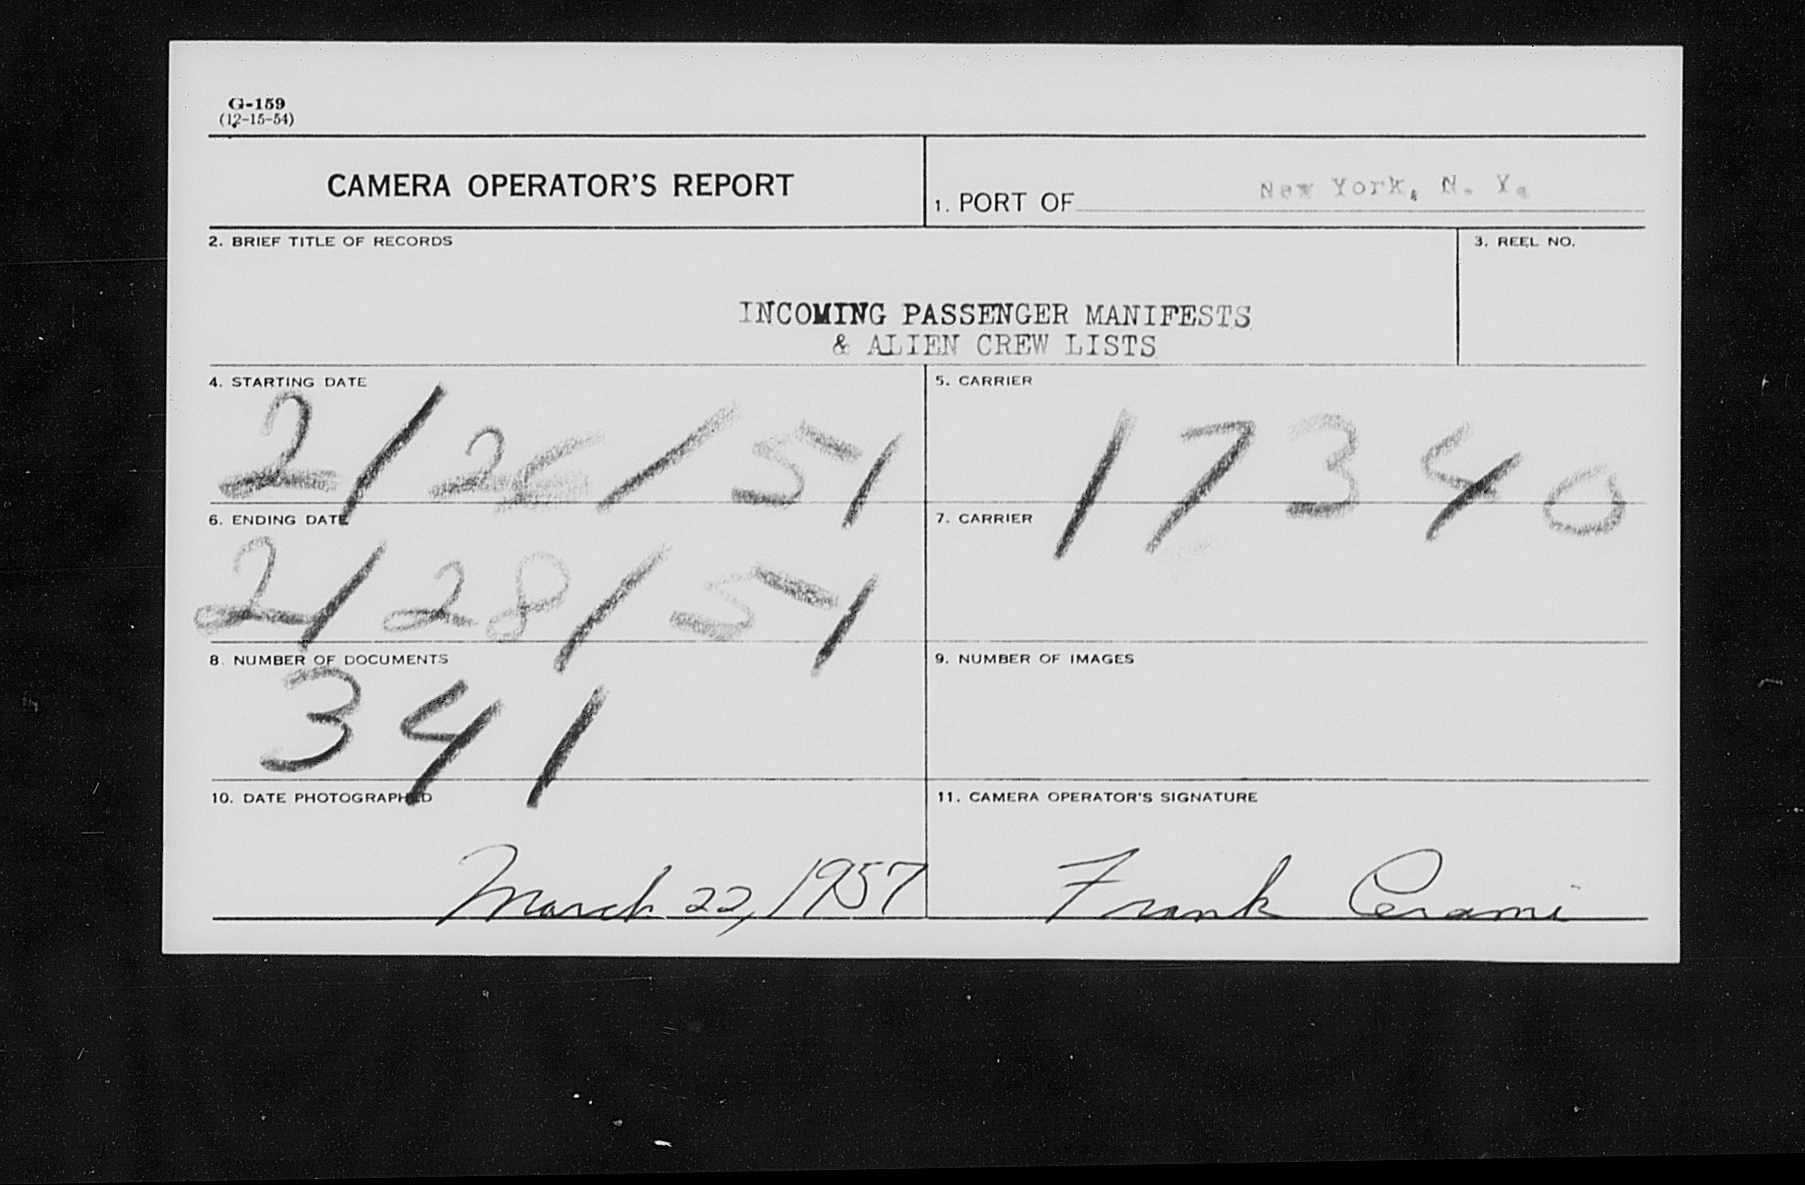 G-159
(12-15-54)
CAMERA OPERATOR'S REPORT
1. PORT OF New York, N. Y.
2. BRIEF TITLE OF RECORDS
3. REEL NO.
INCOMING PASSENGER MANIFESTS
& ALIEN CREW LISTS
4. STARTING DATE
2/26/51
5. CARRIER
17340
6. ENDING DATE
2/28/51
7. CARRIER
8. NUMBER OF DOCUMENTS
341
9. NUMBER OF IMAGES
10. DATE PHOTOGRAPHED
March 22, 1957
11. CAMERA OPERATOR'S SIGNATURE
Frank Cerami